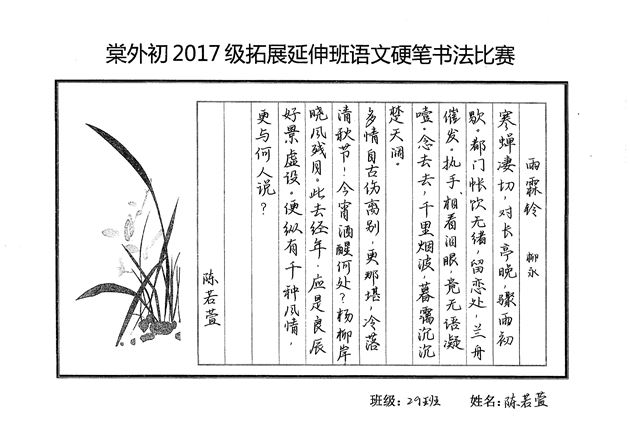 棠外初2017级拓展延伸班语文硬笔书法比赛
雨霖铃 柳永
寒蝉凄切,对长亭晚,骤雨初
歇。都门帐饮无绪,留恋处,兰舟
催发。执手、相看泪眼,竟无语凝
噎。念去去,千里烟波,暮霭沉沉
楚天阔。
多情自古伤离别,更那堪,冷落
清秋节!今宵酒醒何处?杨柳岸
晓风残月。此去经年,应是良辰
好景虚设。便纵有千种风情,
更与何人说?
陈若萱
班级:29班 姓名:陈若萱